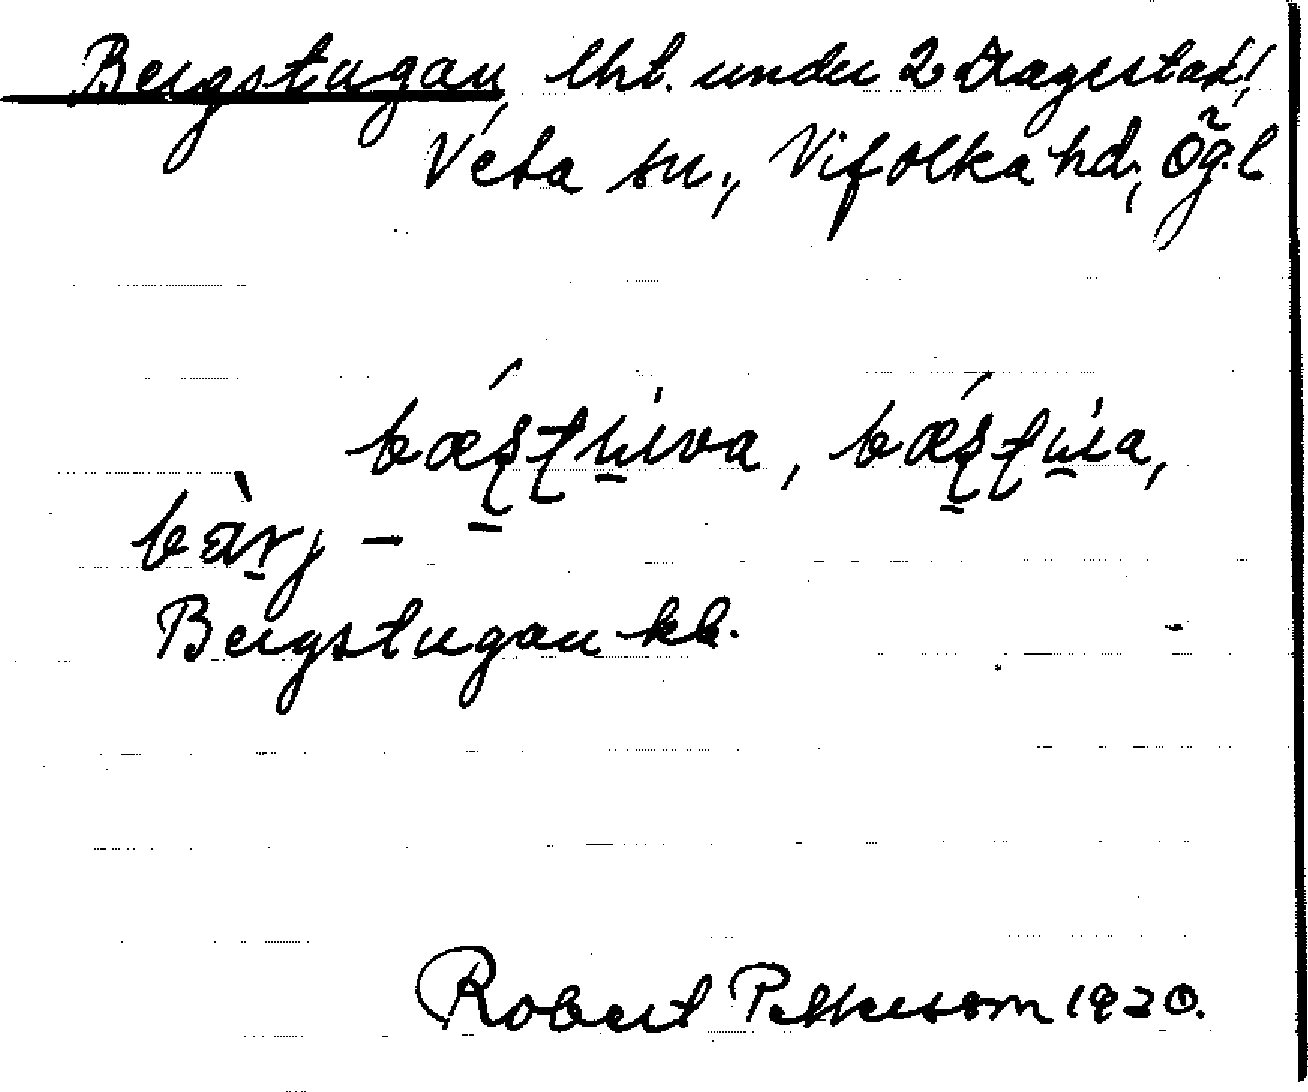 Bergstugan, lht. under 2 Dragestad,
Veta sn., Vifolka hd., Ög.l
bæ̀ʂʈɯva, bæ̀ʂʈɯa,
bàrj –
Bergstugan kb.
Robert Petterson 1920.